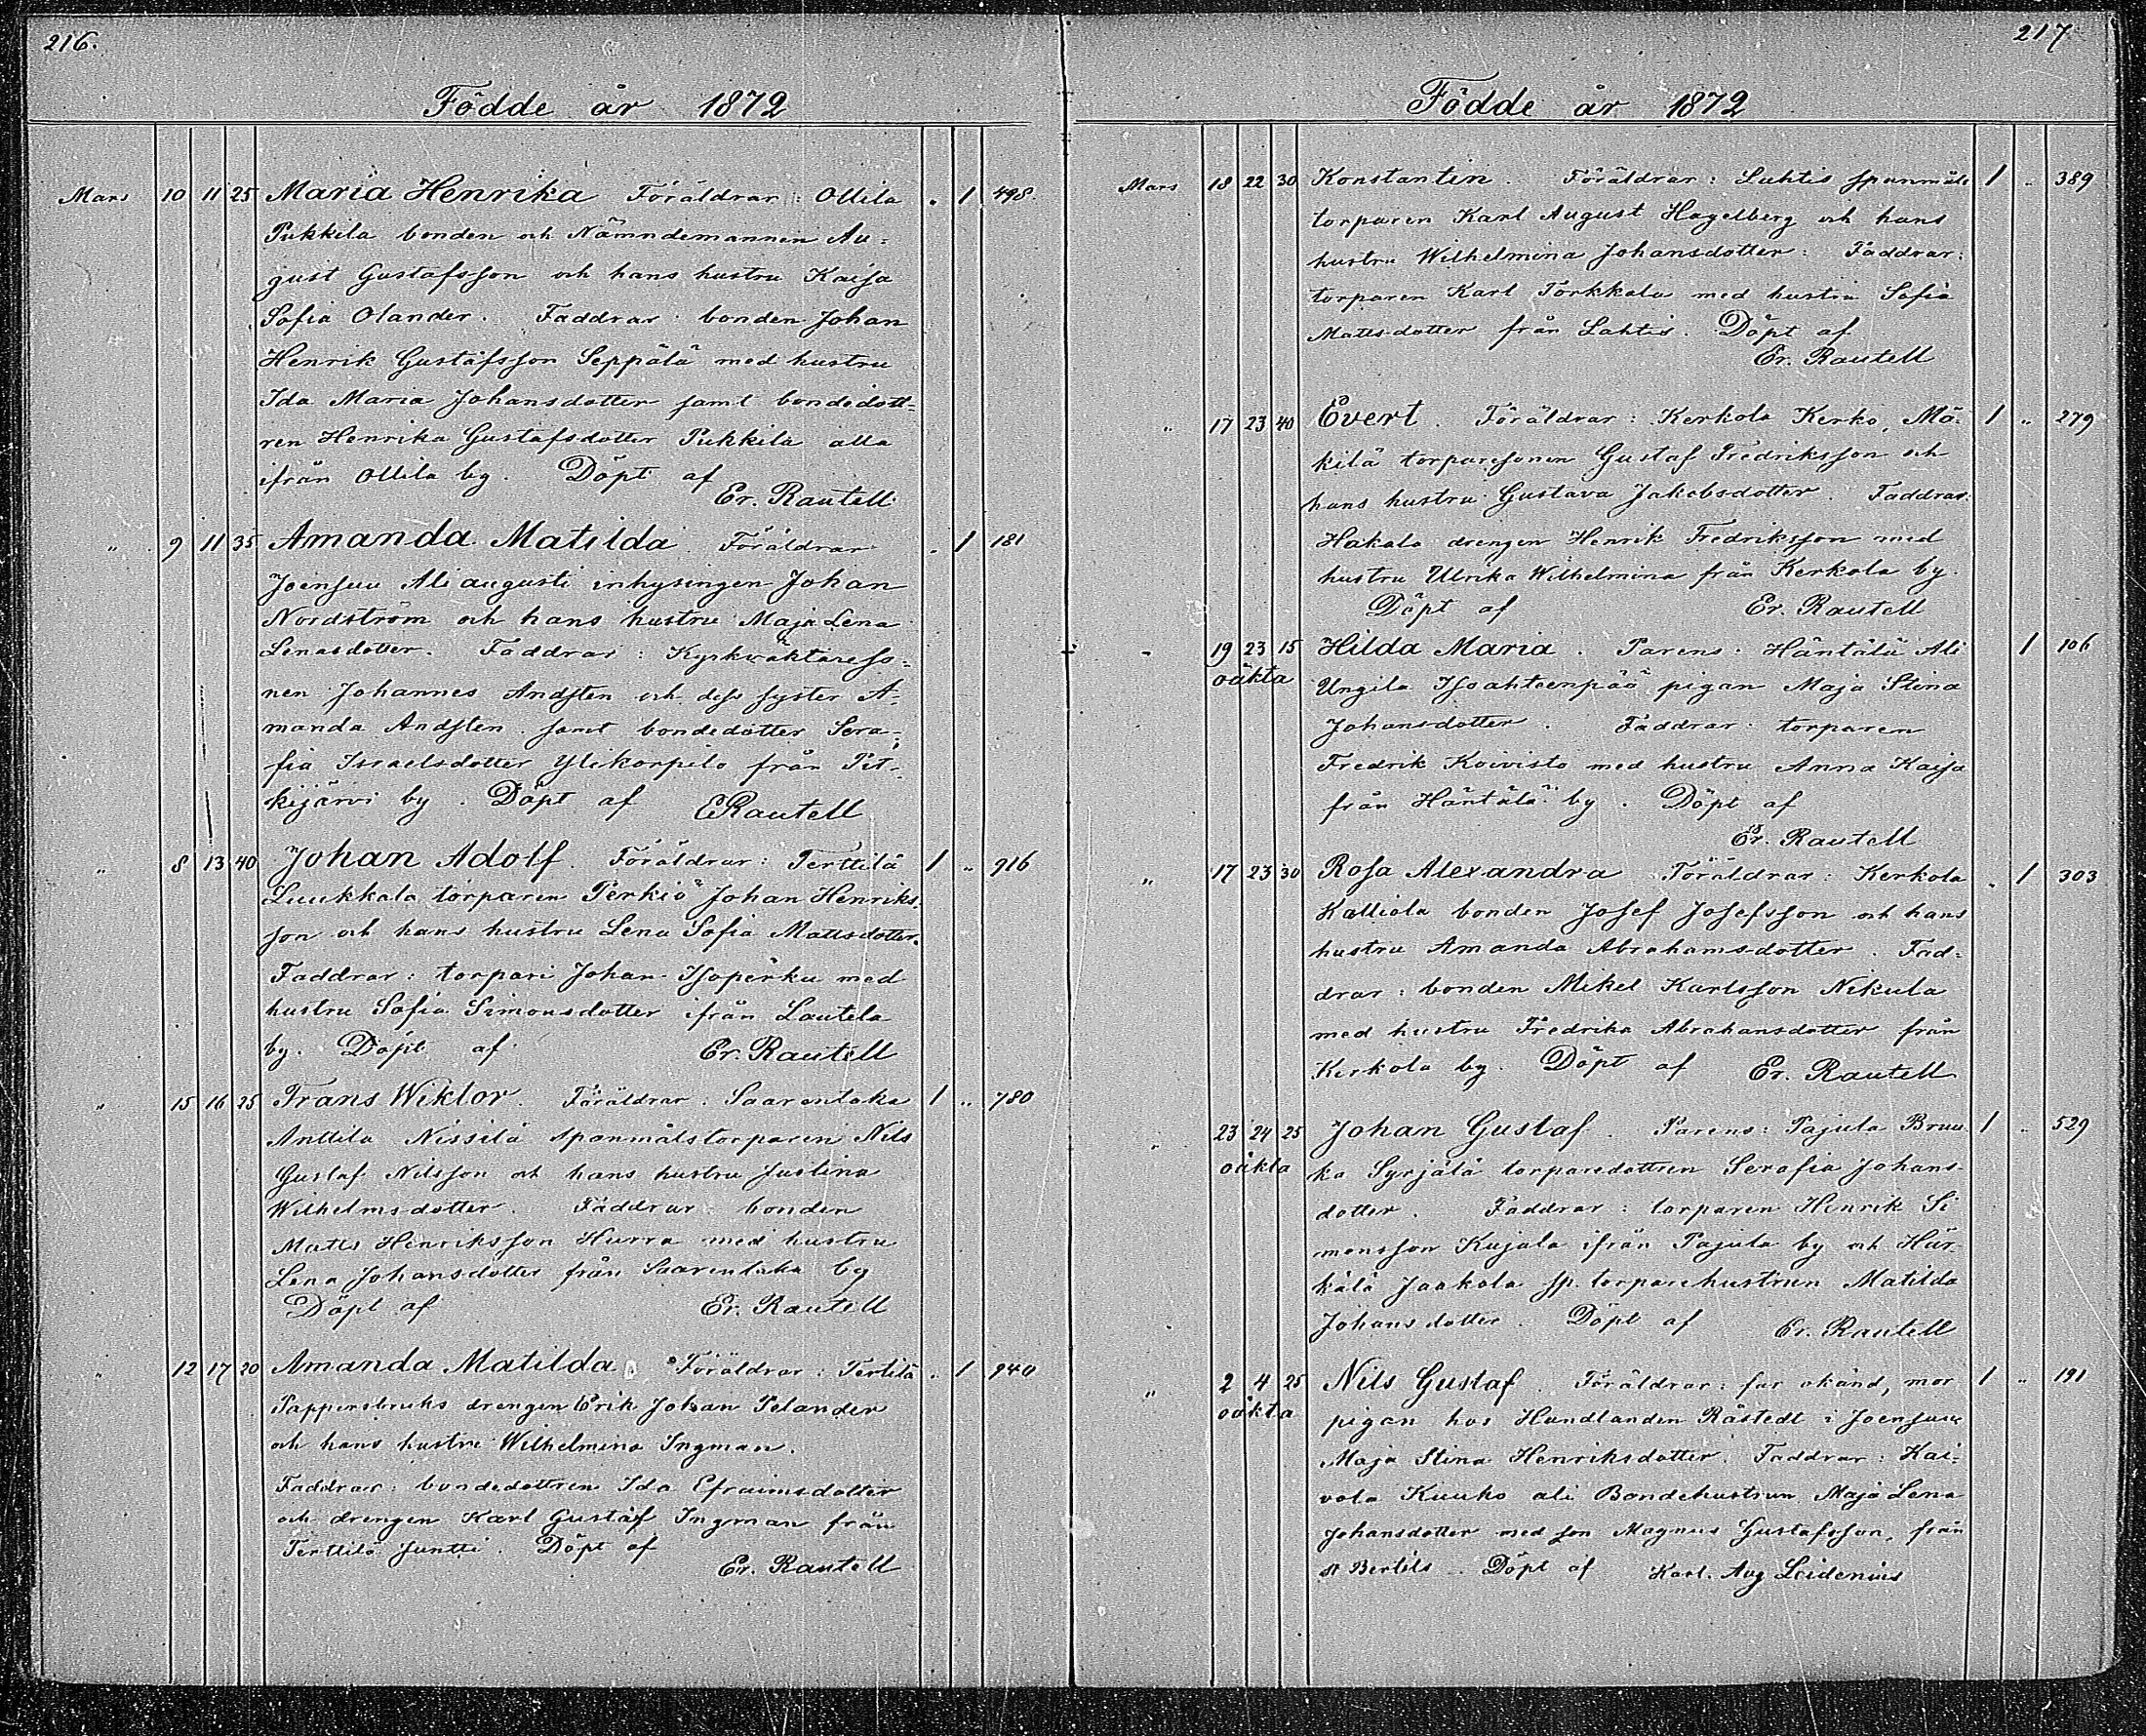 216.
Födde år 1872
Mars 10 11 25 Maria Henrika Föräldrar: Ollila " 1 498.
Pukkila bonden och Nämndemannen Au-
gust Gustafsson och hans hustru Kaisa
Sofia Olander. Faddrar: bonden Johan
Henrik Gustafsson Seppälä med hustru
Ida Maria Johansdotter samt bondedott-
ren Henrika Gustafsdotter Pukkila alla
ifrån Ollila by. Döpt af
Er. Rautell
" 9 11 35 Amanda Matilda. Föräldrar " 1 181
Joensuu Ali augusti inhysingen Johan
Nordström och hans hustru Maja Lena
Lenasdotter. Faddrar: Kyrkvaktaresso-
nen Johannes Andsten och dess syster A-
manda Andsten samt bondedotter Sera-
fia Israelsdotter Ylikorpilo från Pit-
kijärvi by. Döpt af ERautell
" 8 13 40 Johan Adolf. Föräldrar: Terttilä 1 " 916
Luukkala torparen Perkiö Johan Henriks-
son och hans hustru Lena Sofia Mattsdotter.
Faddrar: torpari Johan Isoperku med
hustru Sofia Simonsdotter ifrån Lautela
by. Döpt af Er. Rautell
" 15 16 25 Frans Wiktor. Föräldrar: Saarentaka 1 " 780
Anttila Nissilä spanmålstorparen Nils
Gustaf Nilsson och hans hustru Justina
Wilhelmsdotter. Faddrar bonden
Matts Henriksson Hurra med hustru
Lena Johansdotter från Saarentaka by
Döpt af Er. Rautell
" 12 17 20 Amanda Matilda Föräldrar: Tertilä " 1 940
Pappersbruks drengen Erik Johan Pelander
och hans hustru Wilhelmina Ingman.
Faddrar: bondedottren Ida Efraimsdotter
och drengen Karl Gustaf Ingman från
Terttilä Juntti. Döpt af
Er. Rautell
217
Födde år 1872
Mars 18 22 30 Konstantin. Föräldrar: Lahtis spanmåls 1 " 389
torparen Karl August Hagelberg och hans
hustru Wilhelmina Johansdotter: Faddrar:
torparen Karl Torkkala med hustru Sofia
Mattsdotter från Lahtis. Döpt af
Er. Rautell
" 17 23 40 Evert. Föräldrar: Kerkola Kerko, Mä- 1 " 279
kilä torparesonen Gustaf Fredriksson och
hans hustru Gustava Jakobsdotter. Faddrar:
Hakala drengen Henrik Fredriksson med
hustru Ulrika Wilhelmina från Kerkola by.
Döpt af Er. Rautell
" 19 23 15 Hilda Maria. Parens: Häntälä Ali 1 106
oäkta Ungila Isoahteenpää pigan Maja Stina
Johansdotter. Faddrar: torparen
Fredrik Koivisto med hustru Anna Kaisa
från Häntälä by. Döpt af
Er. Rautell
" 17 23 30 Rosa Alexandra Föräldrar: Kerkola " 1 303
Kalliola bonden Josef Josefsson och hans
hustru Amanda Abrahamsdotter. Fad-
drar: bonden Mikel Karlsson Nikula
med hustru Fredrika Abrahamsdotter från
Kerkola by. Döpt af Er. Rautell
" 23 24 25 Johan Gustaf. Parens: Pajula Bruu- 1 " 529
oäkta ka Syrjälä torparedottren Serafia Johans-
dotter. Faddrar: torparen Henrik Si
monsson Kujala ifrån Pajula by och Här-
kälä Jaakola sp. torparehustrun Matilda
Johansdotter. Döpt af Er. Rautell
" 2 4 25 Nils Gustaf. Föräldrar: far okänd, mor 1 " 191
oäkta pigan hos Handlanden Råstedt i Joensuu
Maja Stina Henriksdotter. Faddrar: Kai-
vola Kuuko ali Bondehustrun Maja Lena
Johansdotter med son Magnus Gustafsson, från
St Bertils. Döpt af Karl. Aug Leidenius